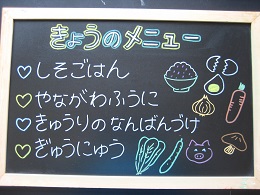 きょうのメニュー
♡しそごはん
♡やながわふうに
♡きゅうりのなんばんづけ
♡ぎゅうにゅう